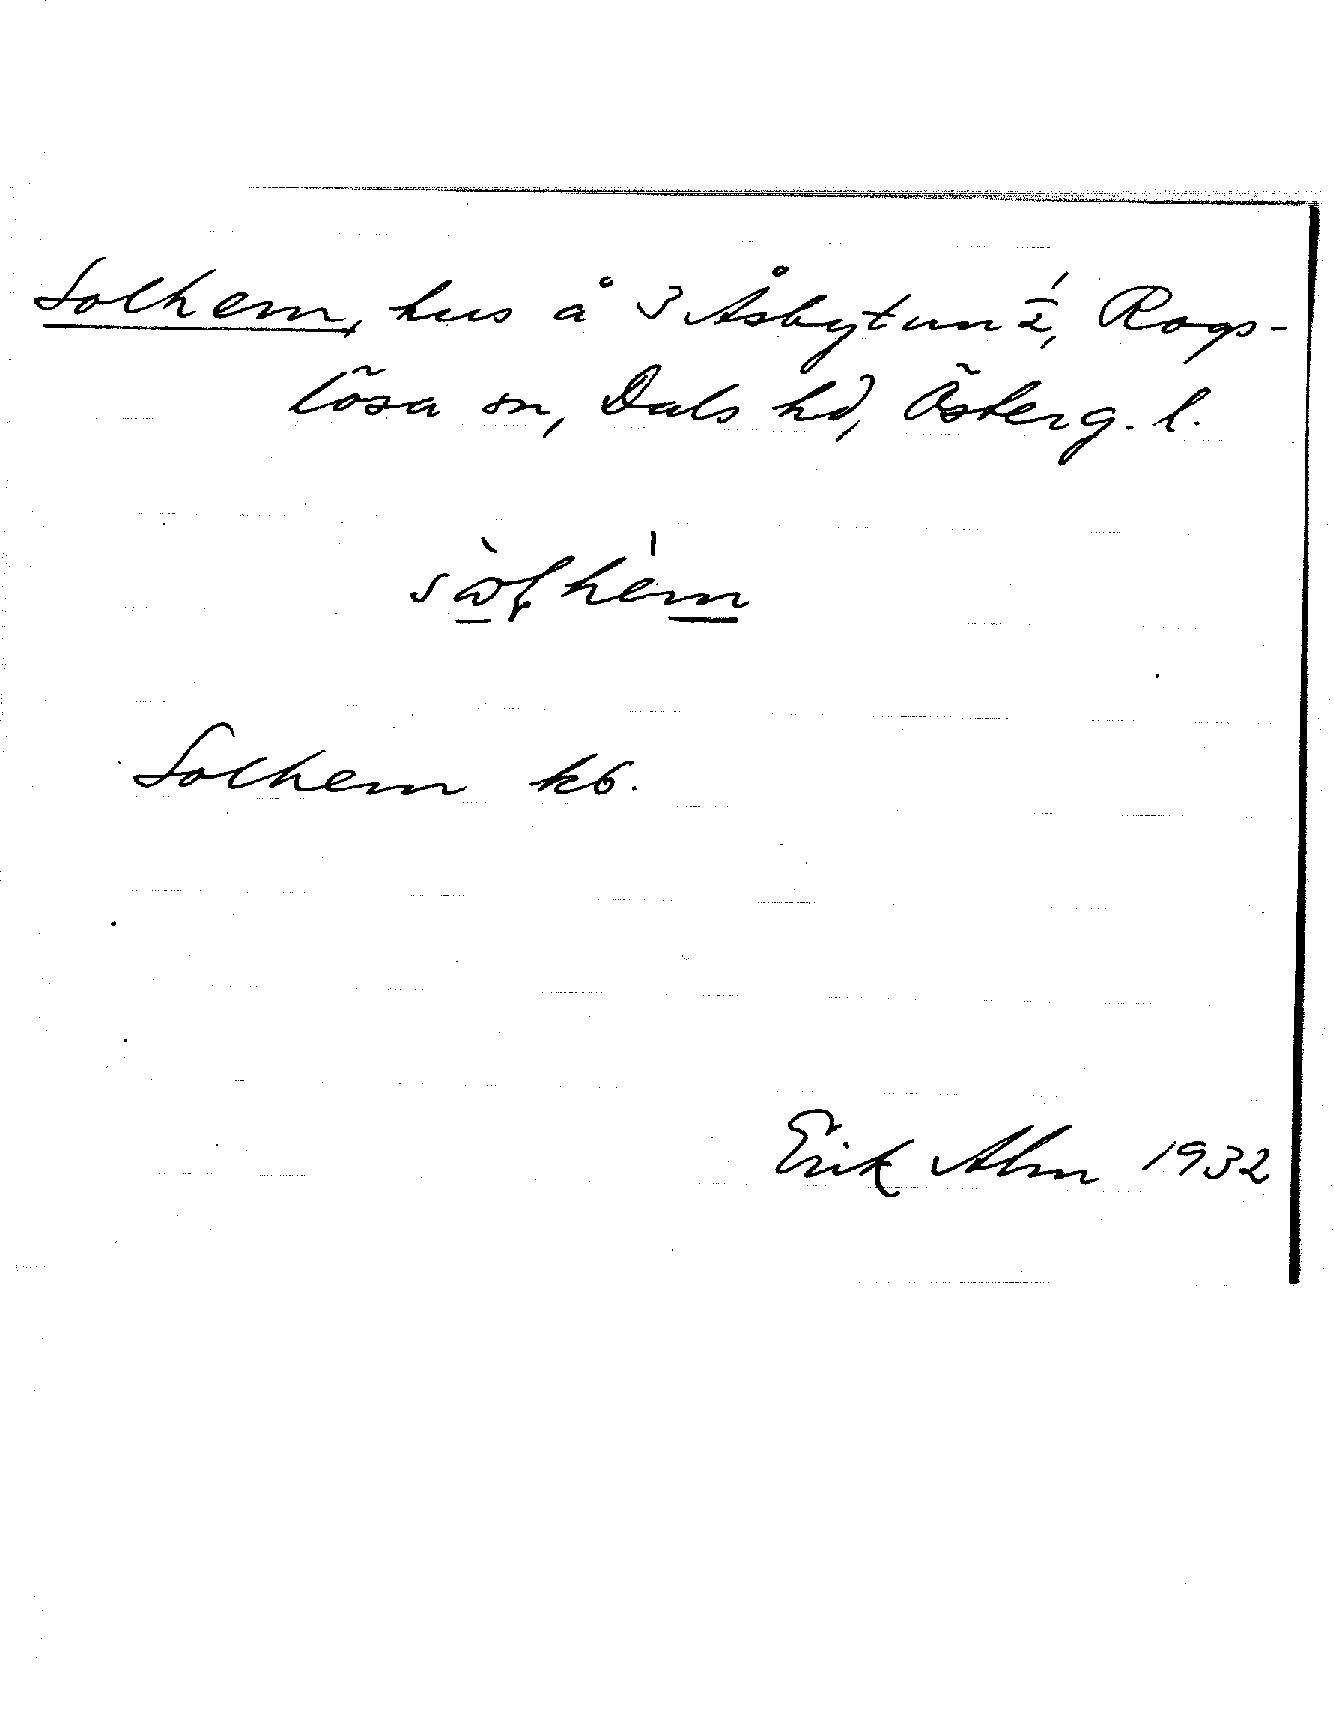 Solhem, hus å 3 Åsbytun ½, Rogs-
lösa sn, Dals hd, Österg. l.
Solhem kb.
Erik Alm 1932